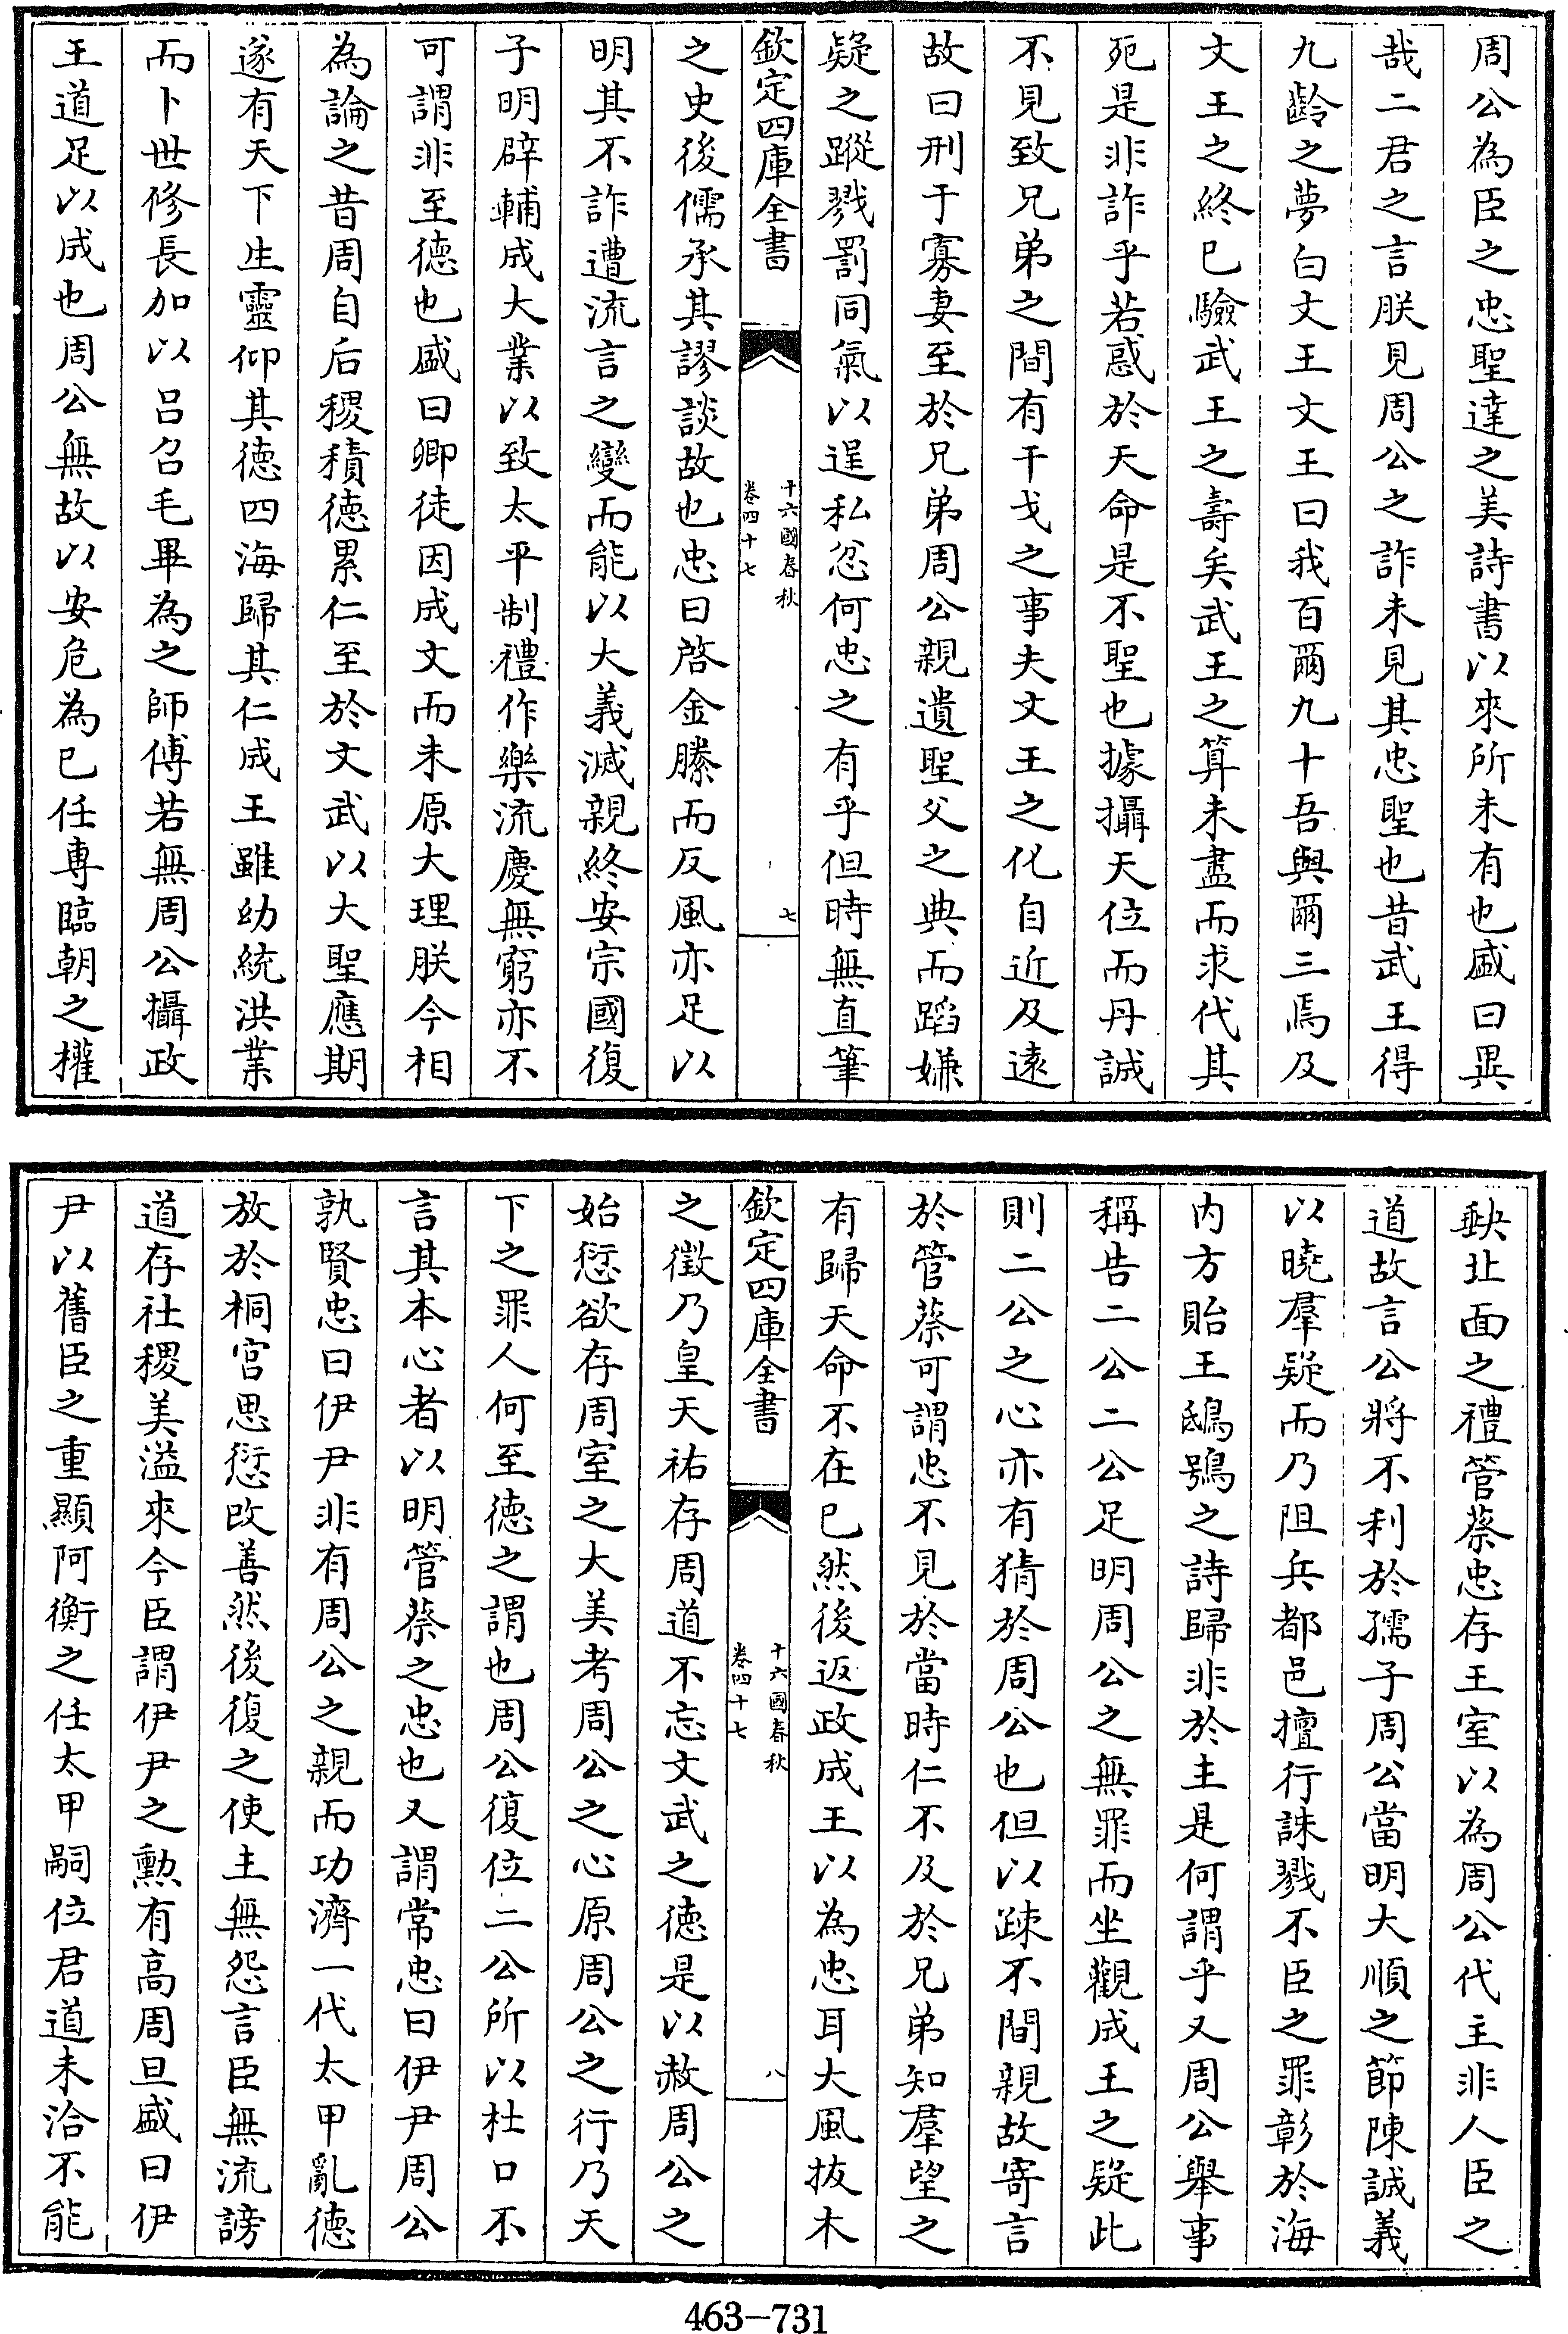 周公為臣之忠聖達之美詩書以來所未有也盛曰異
哉二君之言朕見周公之詐未見其忠聖也昔武王得
九齡之夢白文王文王曰我百爾九十吾與爾三焉及
文王之終已驗武王之壽矣武王之算未盡而求代其
死是非詐乎若惑於天命是不聖也據攝天位而丹誠
不見致兄弟之間有干戈之事夫文王之化自近及遠
故曰刑于寡妻至於兄弟周公親遺聖父之典而蹈嫌
疑之蹤戮罰同氣以逞私忿何忠之有乎但時無直筆
欽定四庫全書
十六國春秋
卷四十七
七
之史後儒承其謬談故也忠曰啓金縢而反風亦足以
明其不詐遭流言之變而能以大義滅親終安宗國復
子明辟輔成大業以致太平制禮作樂流慶無窮亦不
可謂非至德也盛曰卿徒因成文而未原大理朕今相
為論之昔周自后稷積德累仁至於文武以大聖應期
遂有天下生靈仰其德四海歸其仁成王雖幼統洪業
而卜世修長加以呂召毛畢為之師傅若無周公攝政
王道足以成也周公無故以安危為已任專臨朝之權
缺北面之禮管蔡忠存王室以為周公代主非人臣之
道故言公將不利於孺子周公當明大順之節陳誠義
以曉羣疑而乃阻兵都邑擅行誅戮不臣之罪彰於海
内方貽王鴟鴞之詩歸非於主是何謂乎又周公舉事
稱告二公二公足明周公之無罪而坐觀成王之疑此
則二公之心亦有猜於周公也但以疎不間親故寄言
於管蔡可謂忠不見於當時仁不及於兄弟知羣望之
有歸天命不在已然後返政成王以為忠耳大風拔木
欽定四庫全書
十六國春秋
卷四十七
八
之徵乃皇天祐存周道不忘文武之德是以赦周公之
始愆欲存周室之大美考周公之心原周公之行乃天
下之罪人何至德之謂也周公復位二公所以杜口不
言其本心者以明管蔡之忠也又謂常忠曰伊尹周公
孰賢忠曰伊尹非有周公之親而功濟一代太甲亂德
放於桐宮思愆改善然後復之使主無怨言臣無流謗
道存社稷美溢來今臣謂伊尹之勲有高周旦盛曰伊
尹以舊臣之重顯阿衡之任太甲嗣位君道未洽不能
463-731